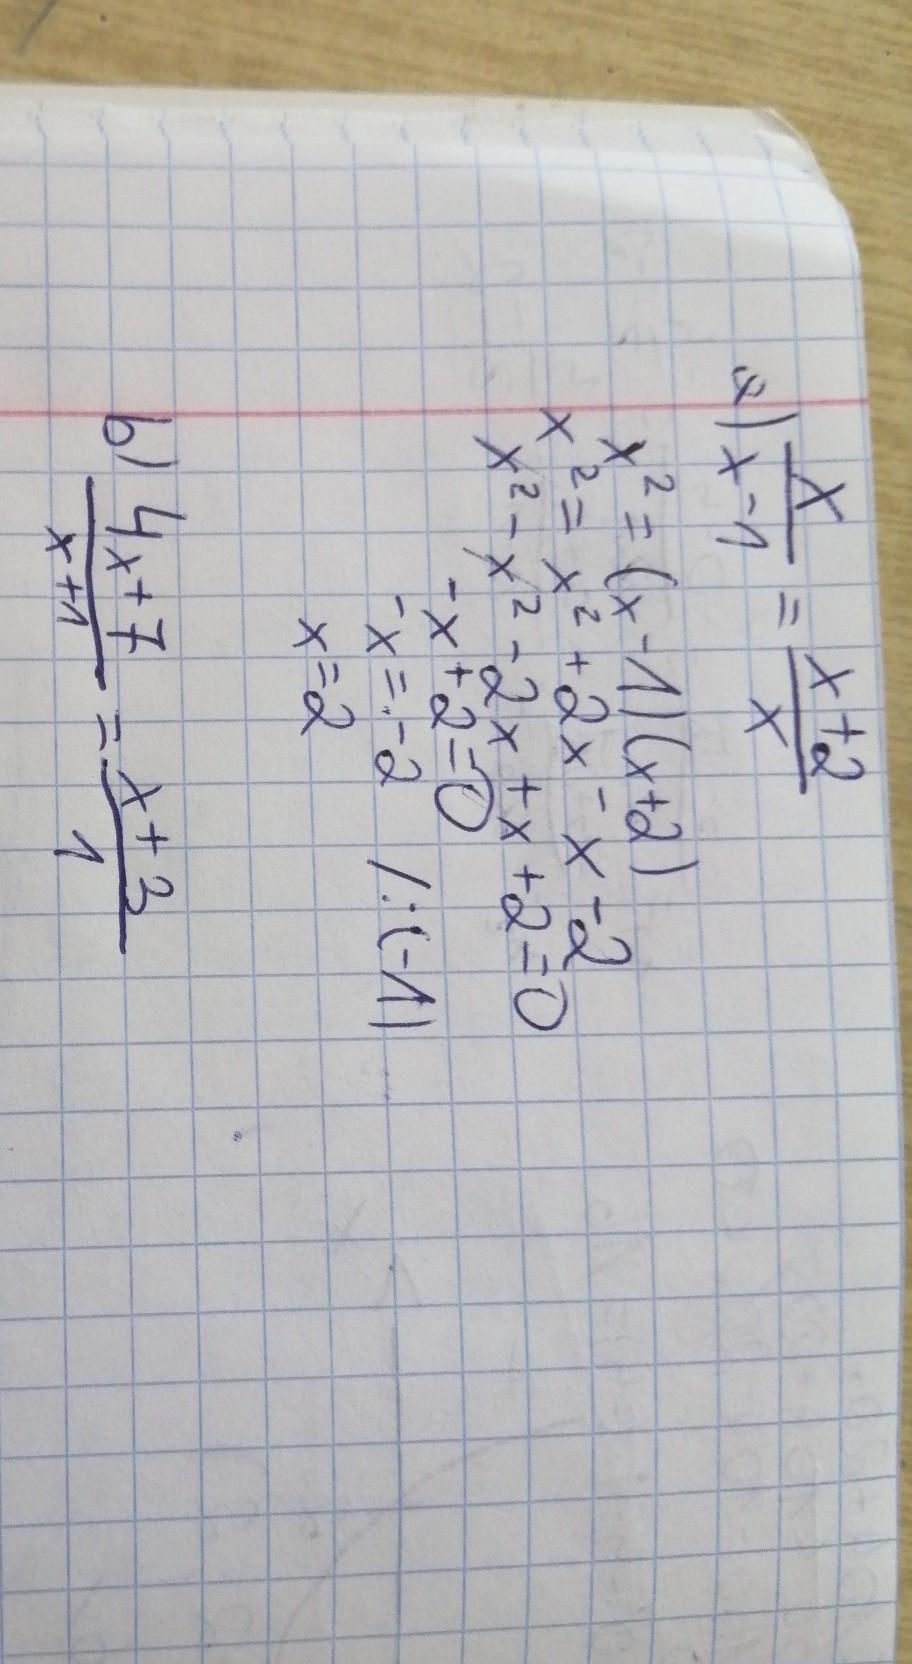 a) x/x-1 = x+2/x
x² = (x-1)(x+2)
x² = x² + 2x - x - 2
x² - x² - 2x + x + 2 = 0
-x + 2 = 0
-x = -2 /:(-1)
x = 2
b) 4x+7/x+1 = x+3/1